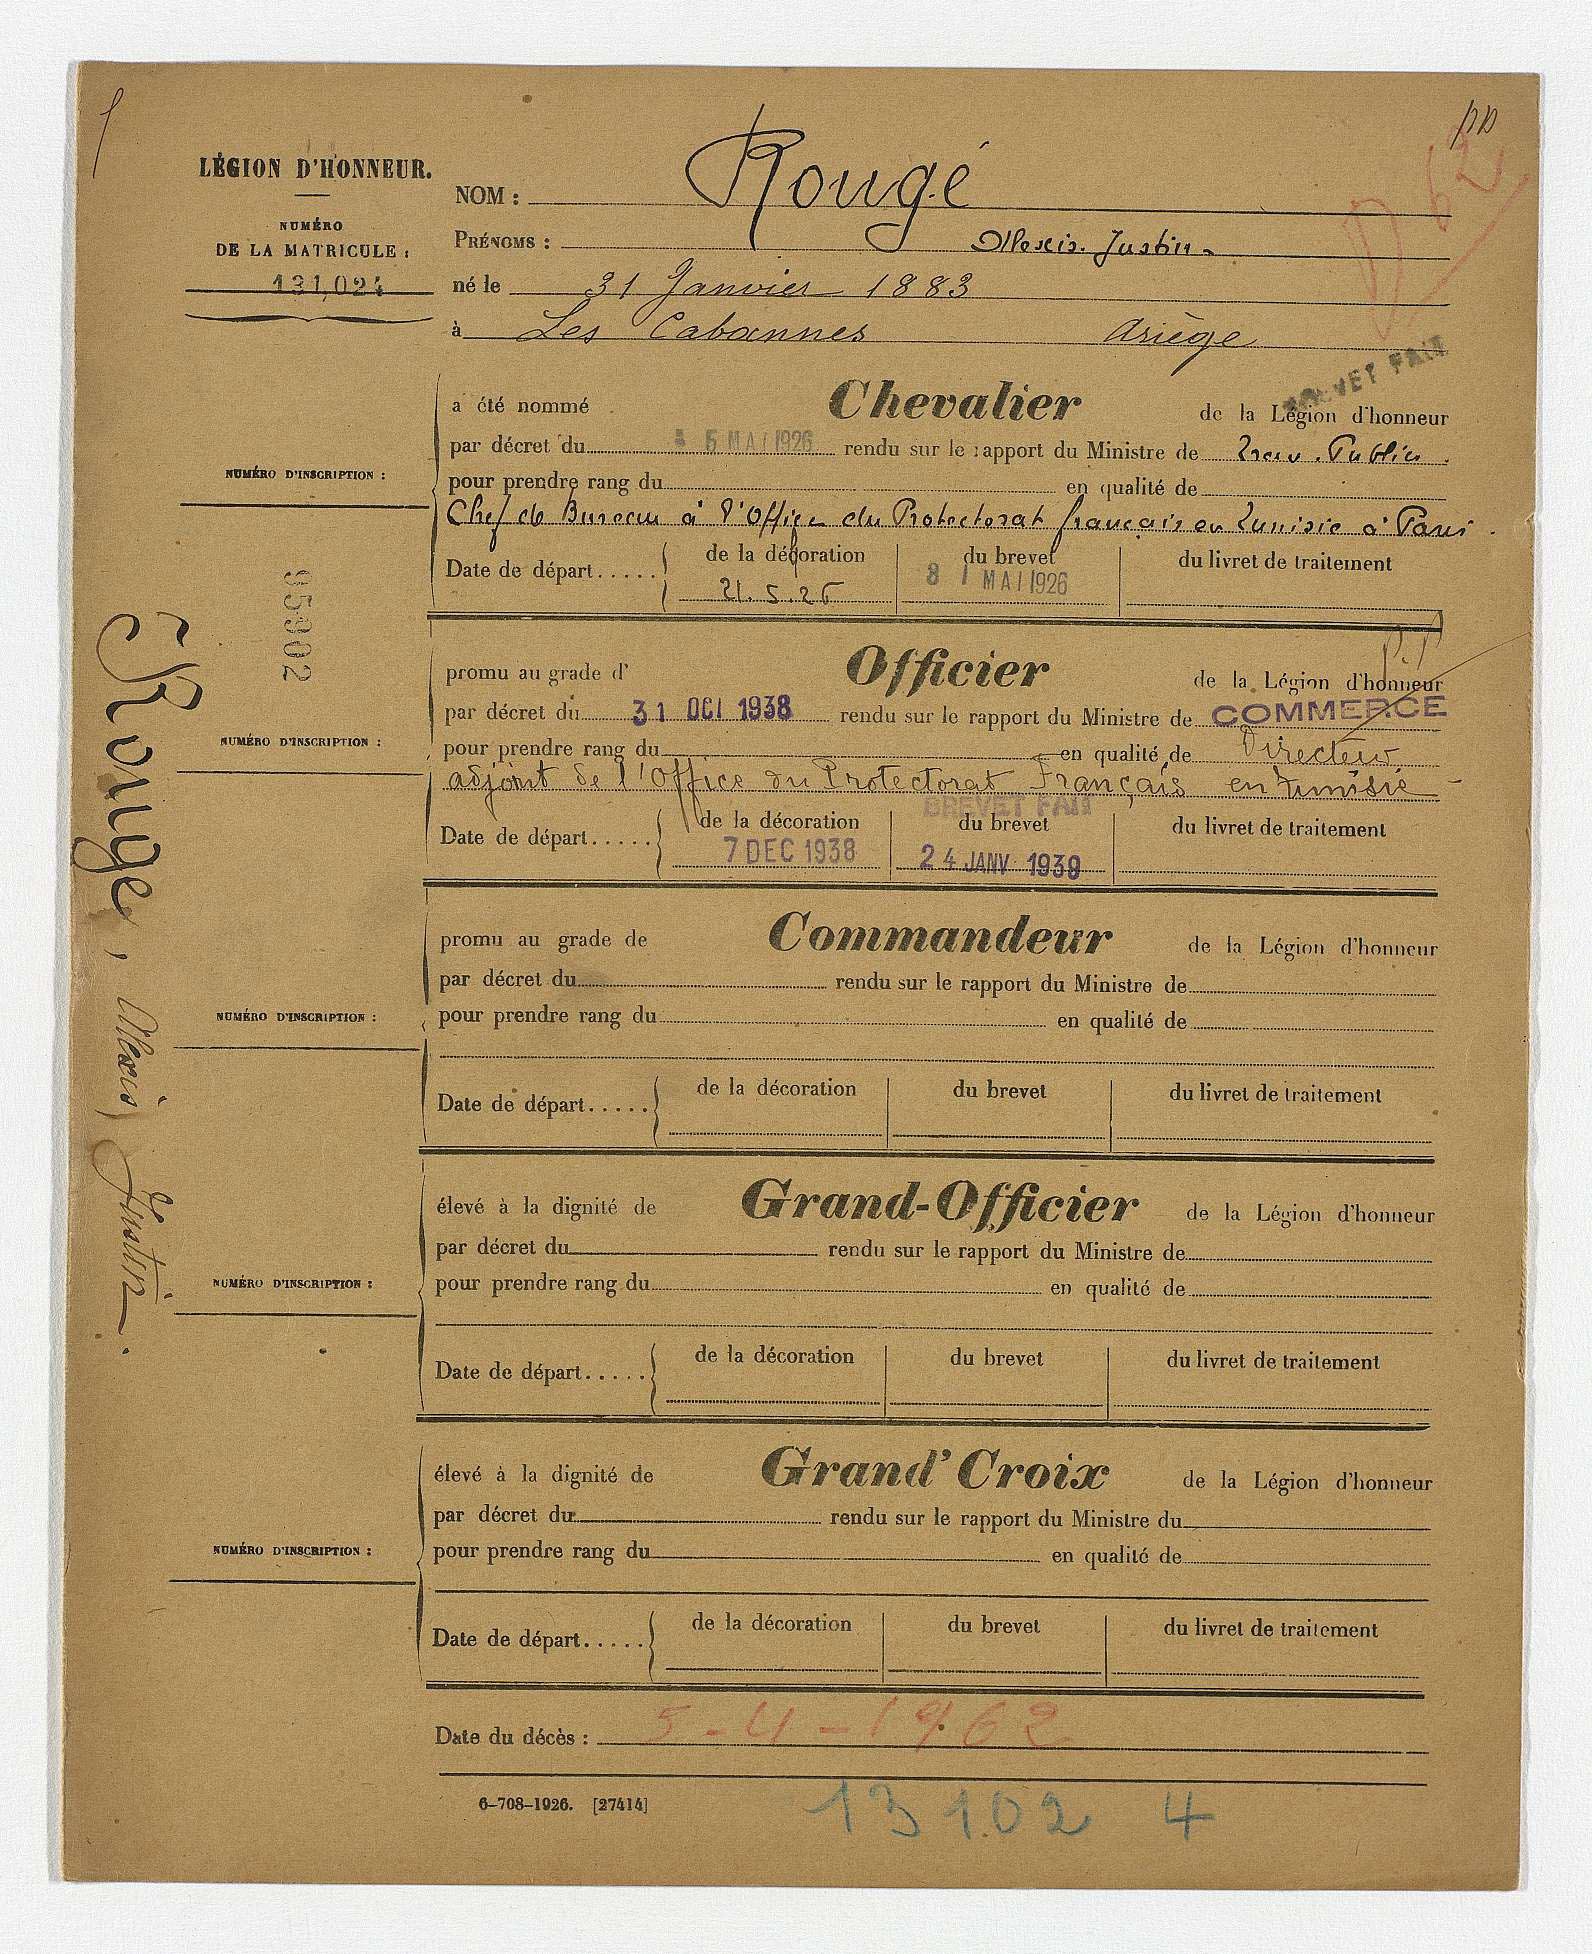 LÉGION D'HONNEUR.
NUMÉRO
DE LA MATRICULE :
131,024
NOM : Rougé
PRÉNOMS : Alexis. Justin.
né le 31 Janvier 1883
à Les Cabannes Ariège
D 62
BREVET FAIT
a été nommé Chevalier de la Légion d'honneur
par décret du 5 MAI 1926 rendu sur le rapport du Ministre de Trav. Publics.
NUMÉRO D'INSCRIPTION :
pour prendre rang du en qualité de
Chef de Bureau à l'Office du Protectorat français en Tunisie à Paris.
Date de départ..... de la décoration du brevet du livret de traitement
21.5.26 31 MAI 1926
95902
promu au grade d' Officier de la Légion d'honneur
par décret du 31 OCT 1938 rendu sur le rapport du Ministre de COMMERCE
NUMÉRO D'INSCRIPTION :
pour prendre rang du en qualité de Directeur
adjoint de l'Office du Protectorat Français en Tunisie
BREVET FAIT
Date de départ..... de la décoration du brevet du livret de traitement
7 DEC 1938 24 JANV 1939
promu au grade de Commandeur de la Légion d'honneur
par décret du rendu sur le rapport du Ministre de
NUMÉRO D'INSCRIPTION :
pour prendre rang du en qualité de
Date de départ..... de la décoration du brevet du livret de traitement
élevé à la dignité de Grand-Officier de la Légion d'honneur
par décret du rendu sur le rapport du Ministre de
NUMÉRO D'INSCRIPTION :
pour prendre rang du en qualité de
Date de départ..... de la décoration du brevet du livret de traitement
élevé à la dignité de Grand'Croix de la Légion d'honneur
par décret du rendu sur le rapport du Ministre du
NUMÉRO D'INSCRIPTION :
pour prendre rang du en qualité de
Date de départ..... de la décoration du brevet du livret de traitement
Date du décès : 5-4-1962
6-708-1926. [27414]
131.02 4
Rougé, Alexis, Justin.